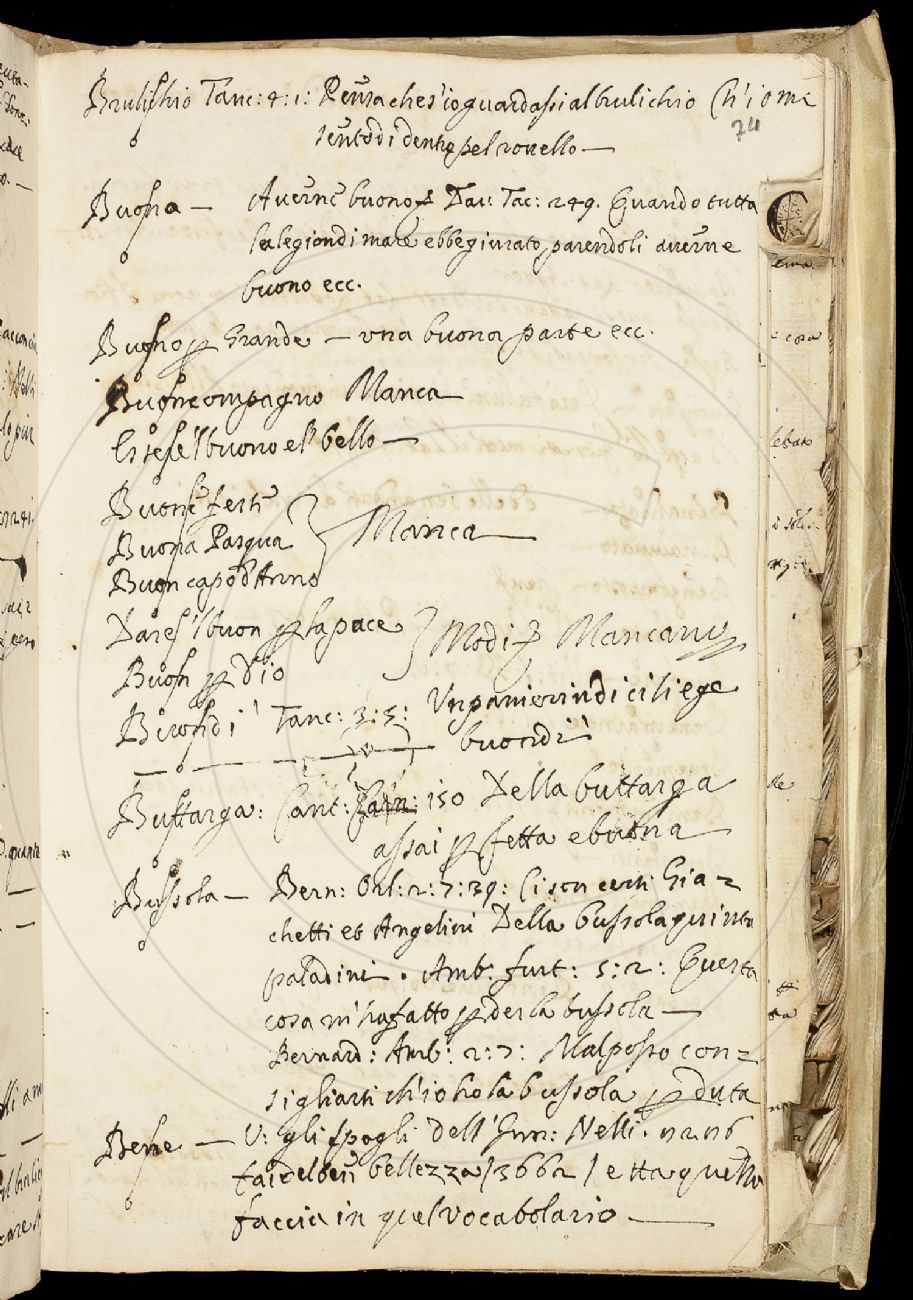 Brulichio Tanc: 4: 1: Pensa ches'io guardassi al brulichio Ch'io me
74
sento di dentro pel rovello —
Buona — Averne buono p Dav: Tac: 249. Quando tutta
la legion di mare ebbe giurato, parendoli averne
buono ecc.
Buono p Grande — una buona parte ecc.
Buon compagno Manca
Es se'l buono e'l bello —
Buone feste
Buona Pasqua } Manca —
Buon capo d'Anno
Dare s'l buon p la pace } Modi Mancano
Buon p dio
Buondi' Tanc: 3: 5: Un panierin di ciliege
buondi'
Buttarga: Cant: 150 Della buttarga
assai p fetta e buona
Bussola — Bern: Orl: 2: 7: 39: Ci son certi Gia=
chetti et Angelini Della bussola
paladini. Amb: furt: 5: 2: Questa
cosa m'ha fatto pder la bussola —
Bernard: Amb: 2: 7: Mal posso con=
sigliarti ch'io ho la bussola pduta
Bene — V: Gli spogli dell' Nelli.
bellezza / 3662 /
faccia in quel vocabolario —